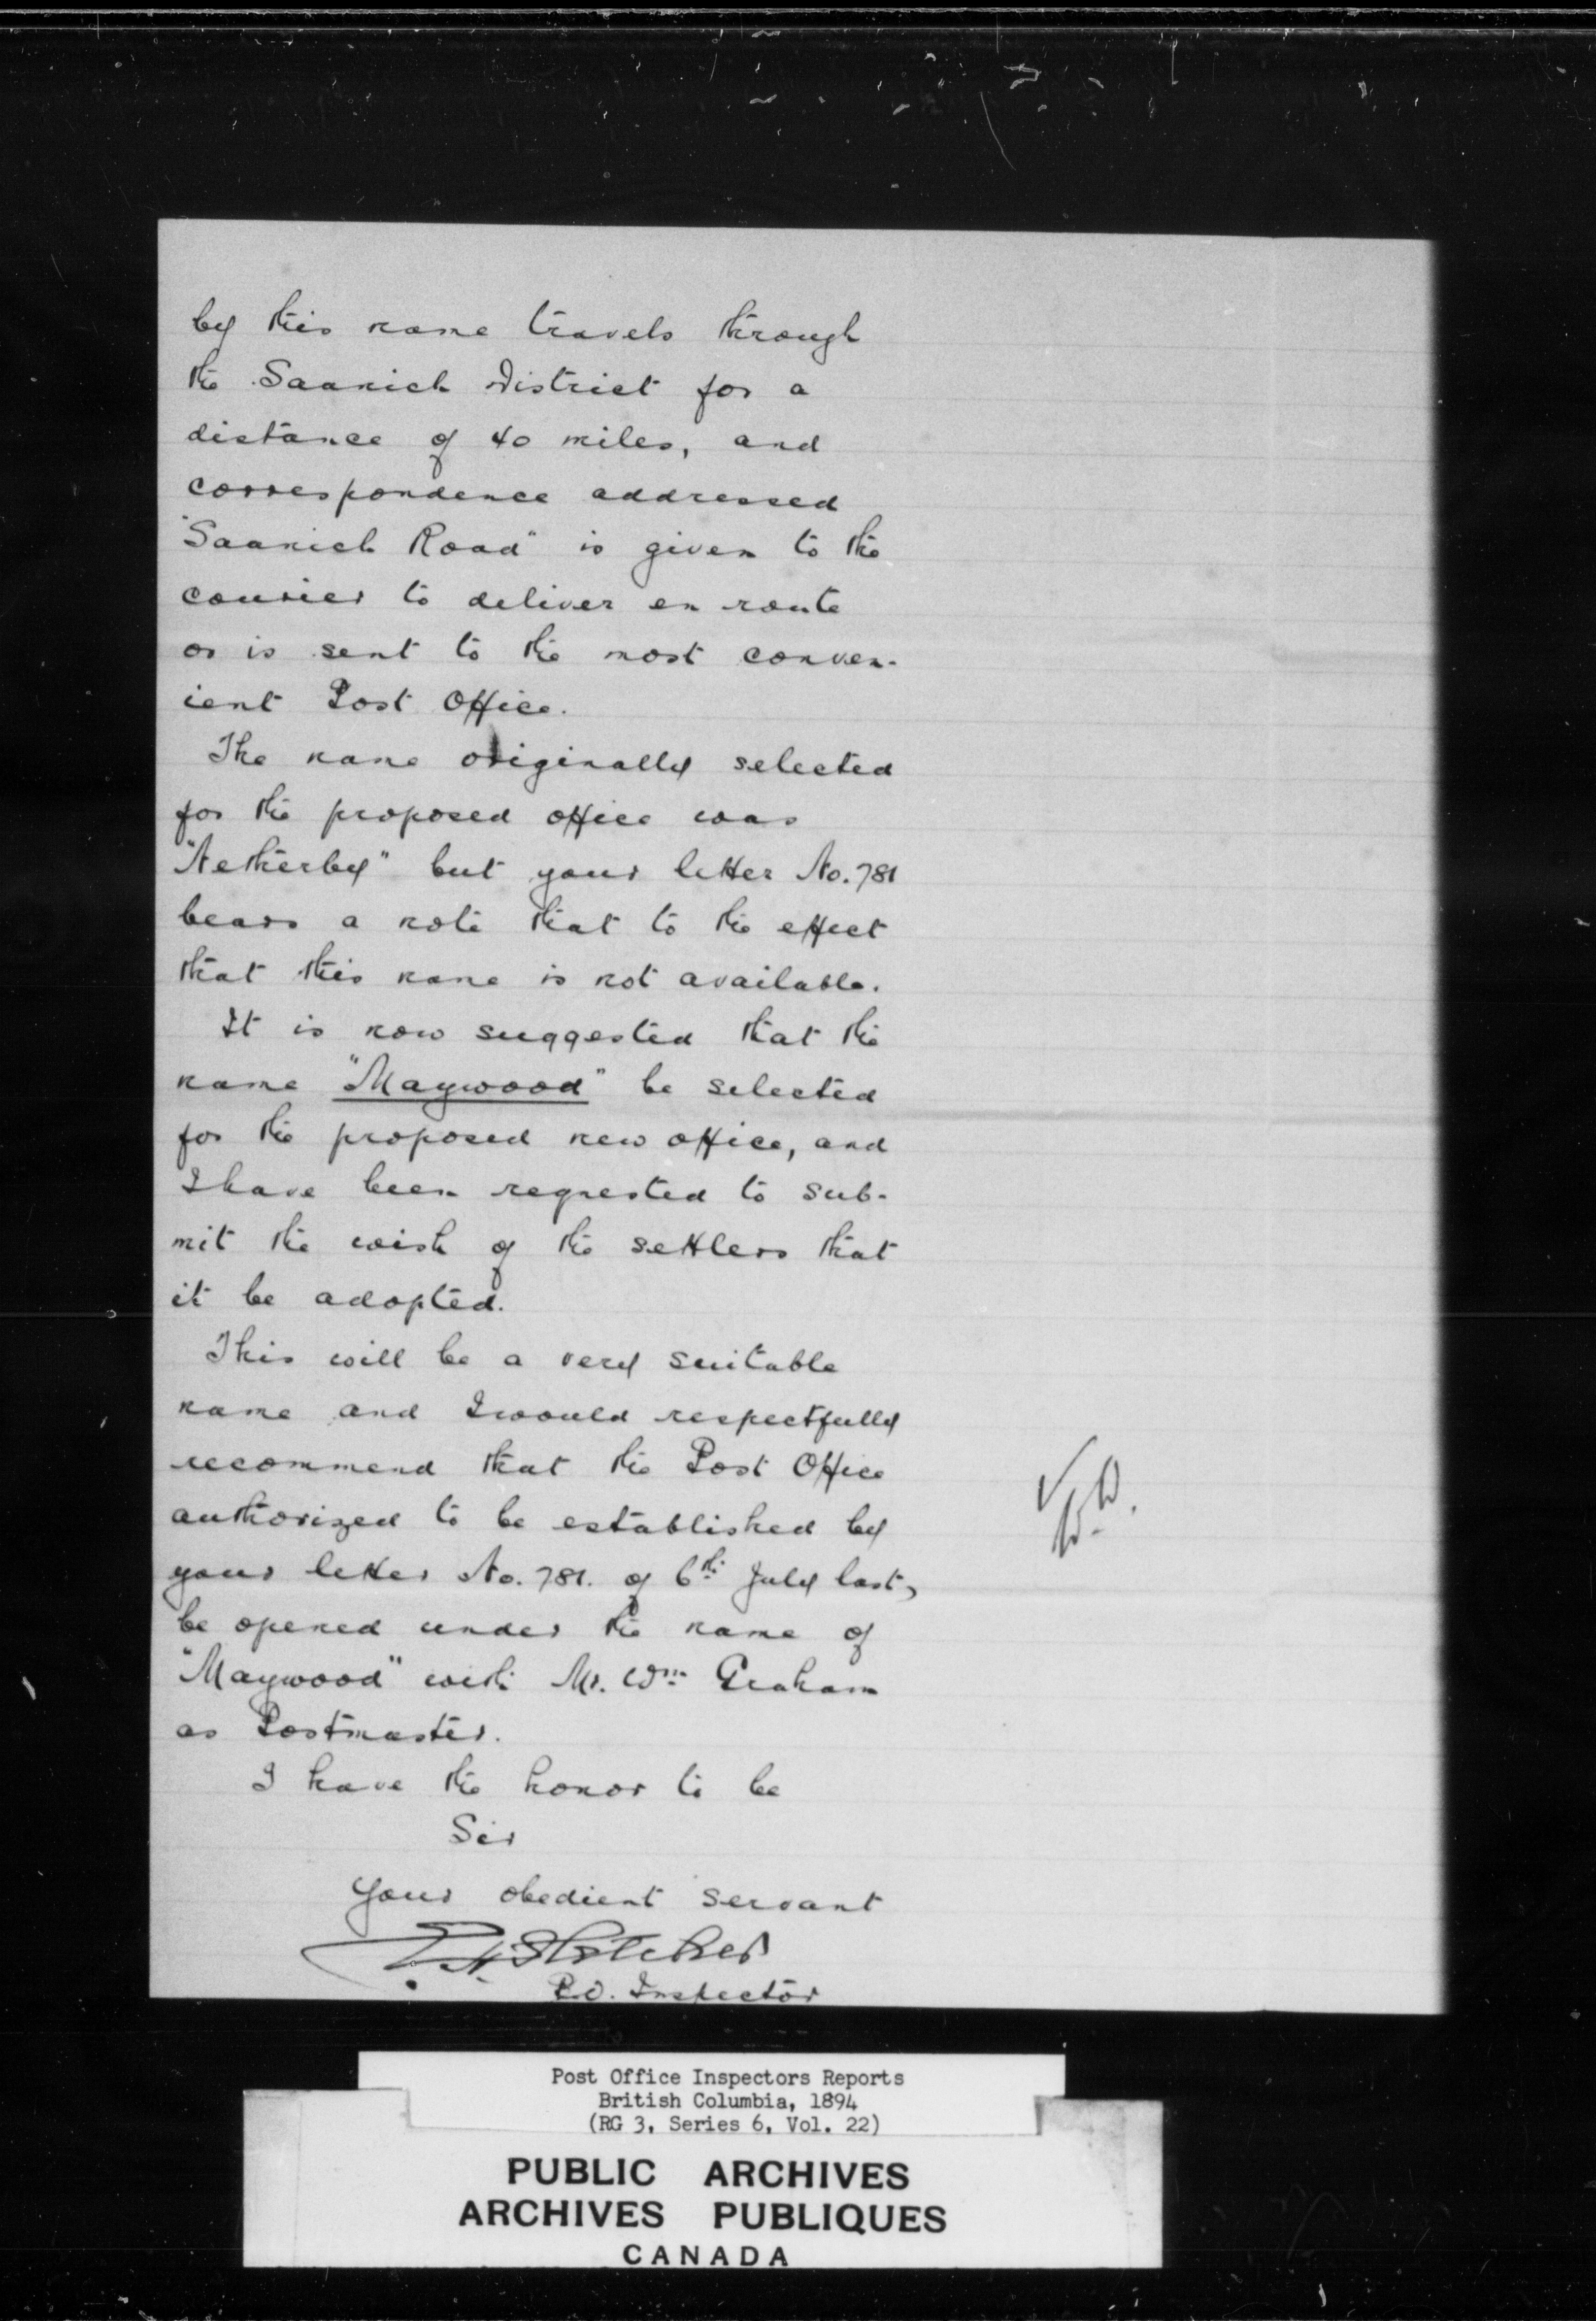 by this name travels through
the Saanich District for a
distance of 40 miles, and
correspondence addressed
"Saanich Road" is given to the
courier to deliver en route
or is sent to the most conven-
ient Post Office.
The name originally selected
for the proposed office was
"Netherby" but your letter No. 781
bears a note that to the effect
that this name is not available.
It is now suggested that the
name "Maywood" be selected
for the proposed new office, and
I have been requested to sub-
mit the wish of the settlers that
it be adopted.
This will be a very suitable
name and I would respectfully
recommend that the Post Office
authorized to be established by
your letter No. 781. of 6th July last,
be opened under the name of
"Maywood" with Mr. Wm Graham
as Postmaster.
I have the honor to be
Sir
Your obedient servant
E.H. Fletcher
P.O. Inspector
Post Office Inspectors Reports
British Columbia, 1894
(RG 3, Series 6, Vol. 22)
PUBLIC ARCHIVES
ARCHIVES PUBLIQUES
CANADA